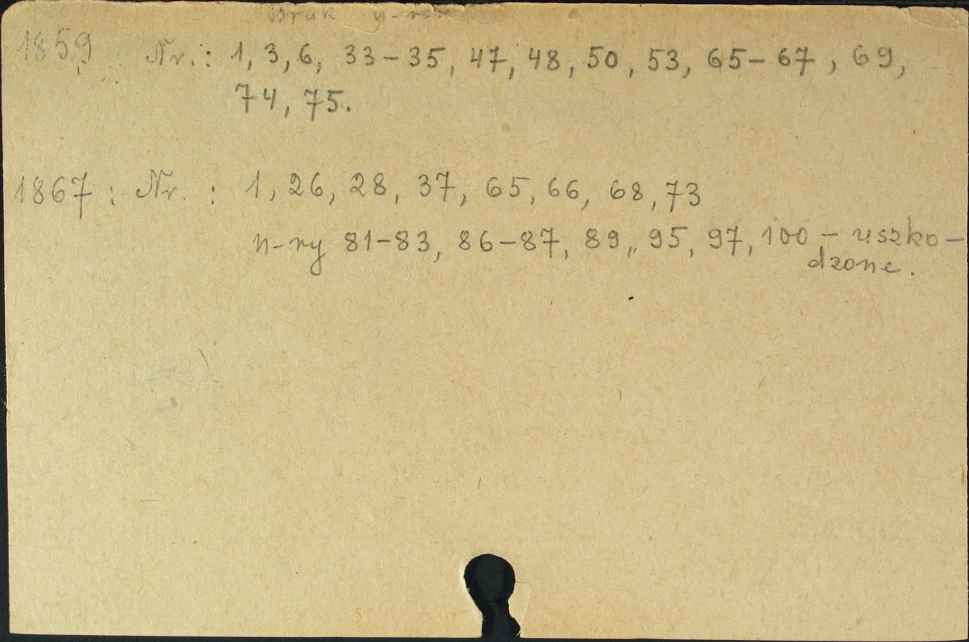 Brak n-rów
1859 Nr.: 1, 3, 6, 33-35, 47, 48, 50, 53, 65-67, 69,
74, 75.
1867: Nr. : 1, 26, 28, 37, 65, 66, 68, 73
n-ry 81-83, 86-87, 89, 95, 97, 100 - uszko-
dzone.